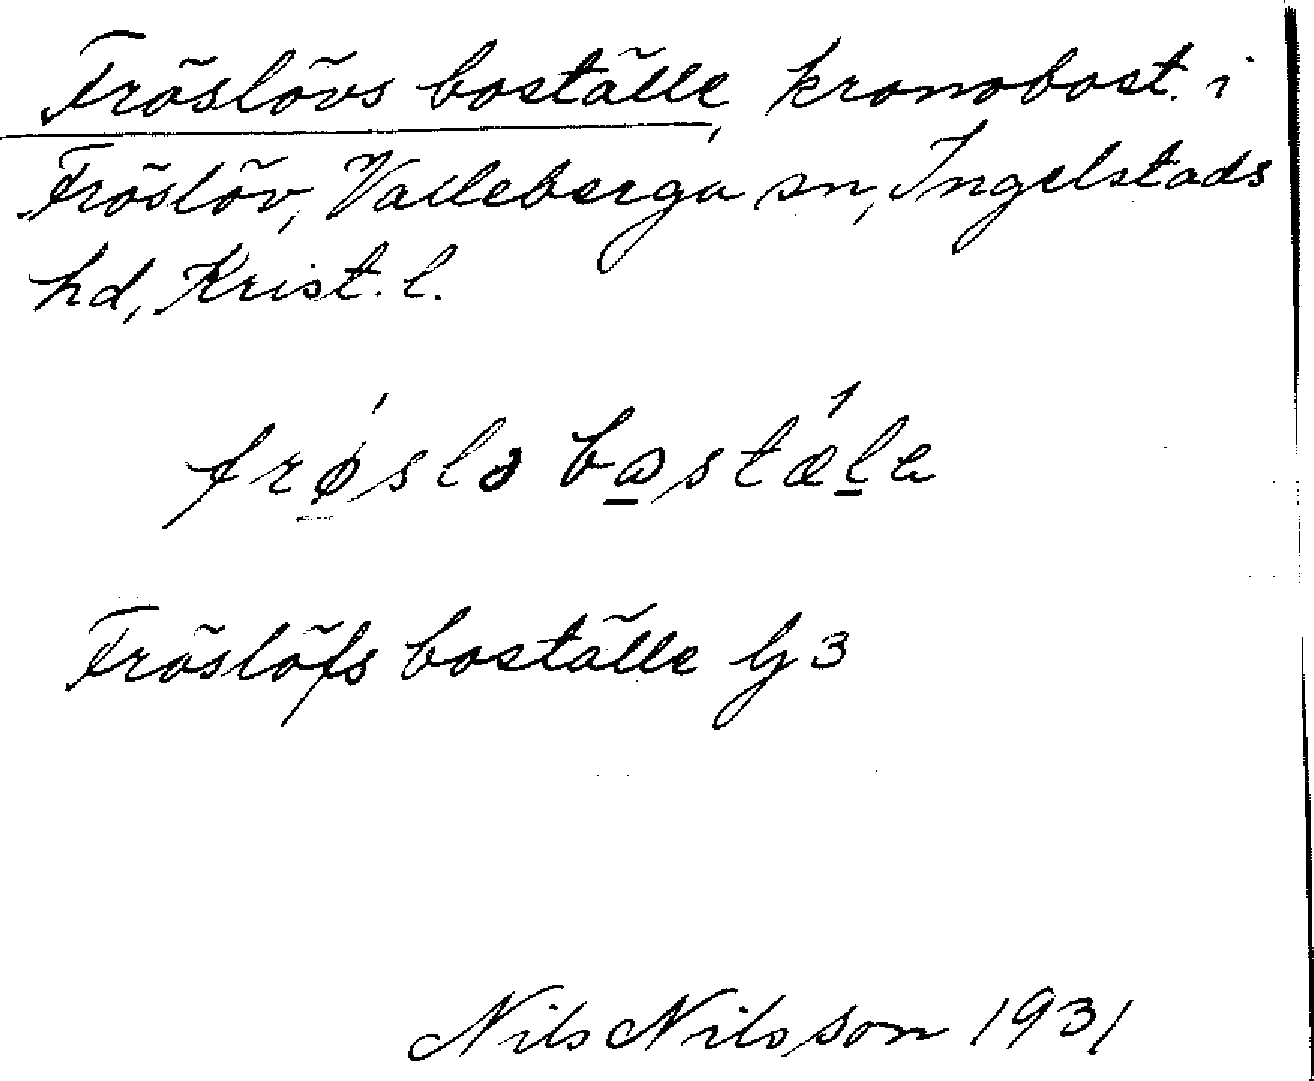 Fröslövs boställe, kronobost. i
Fröslöv, Valleberga sn, Ingelstads
hd, Krist. l.
frǿ̱slə ba̱stǽḻa
Fröslöfs boställe G3
Nils Nilsson 1931